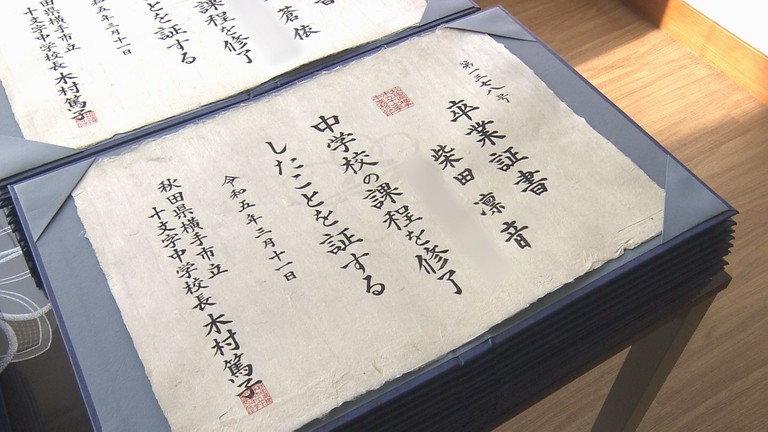 第一三七八号
卒業証書
柴田凛音
中学校の課程を修了
したことを証する
令和五年三月十一日
秋田県横手市立
十文字中学校長 木村篤子
音
蒼依
課程を修了
ことを証する
和五年三月十一日
秋田県横手市立
十文字中学校長 木村篤子